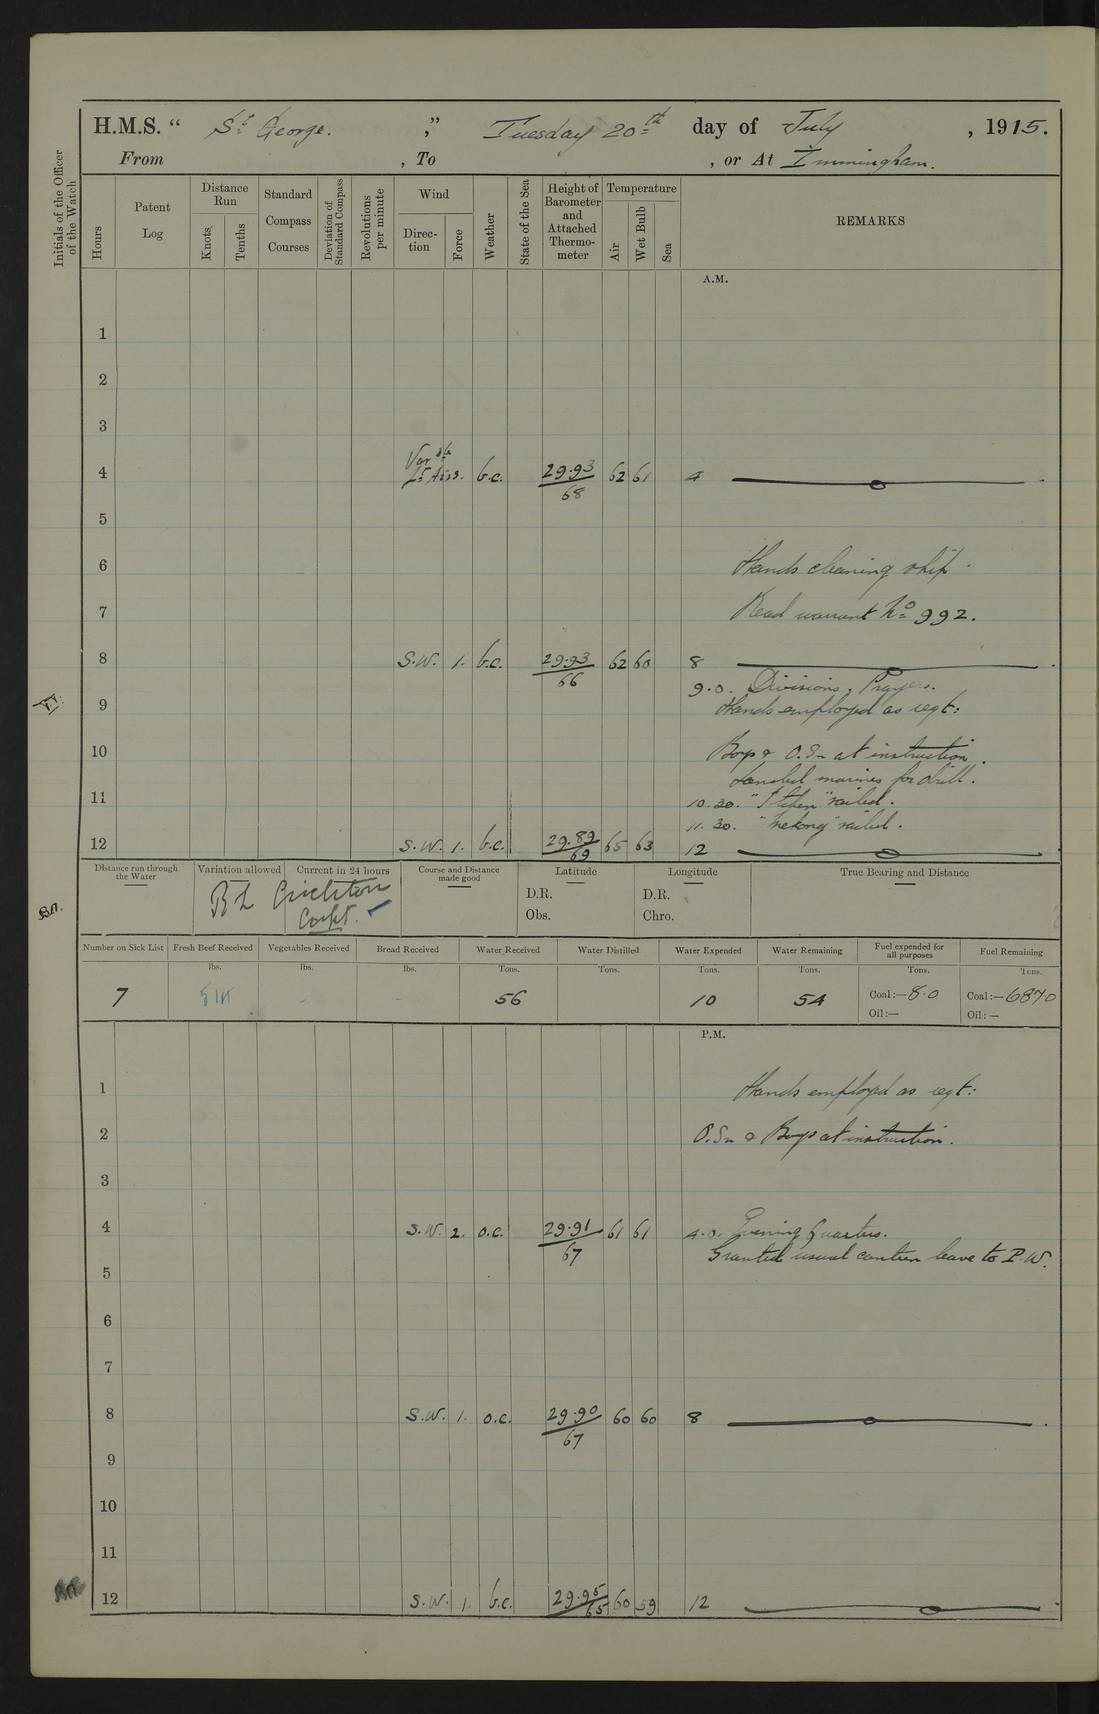 H.M.S. “ St George. ,” Tuesday 20th day of July , 1915.
From , To , or At Immingham.
Initials of the Officer of the Watch
Hours
Patent Log
Distance Run
Knots
Tenths
Standard Compass Courses
Deviation of Standard Compass
Revolutions per minute
Wind
Direction
Force
Weather
State of the Sea
Height of Barometer and Attached Thermometer
Temperature
Air
Wet Bulb
Sea
REMARKS
A.M.
1
2
3
4 Var ble Lt Airs. b.c. 29.93 / 68 62 61 4
5
6 Hands cleaning ship.
7 Read warrant No 992.
8 S.W. 1. b.c. 29.93 / 66 62 60 8
9.0. Divisions, Prayers.
9 Hands employed as reqt:
10 Boys & O.Sn at instruction.
Landed marines for drill.
11 10.30. " " sailed.
11.30. " " sailed.
12 S.W. 1. b.c. 29.89 / 69 65 63 12
Distance run through the Water
Variation allowed
Current in 24 hours
Course and Distance made good
Latitude
Longitude
True Bearing and Distance
D.R. D.R.
Obs. Chro.
Crichton
Capt.
Number on Sick List
Fresh Beef Received
Vegetables Received
Bread Received
Water Received
Water Distilled
Water Expended
Water Remaining
Fuel expended for all purposes
Fuel Remaining
lbs. lbs. lbs. Tons. Tons. Tons. Tons. Tons. Tons.
7 - - 56 10 54 Coal:— 8.0 Coal:— 6870
Oil:— Oil:—
P.M.
1 Hands employed as reqt:
2 O.Sn & Boys at instruction.
3
4 S.W. 2. o.c. 29.91 / 67 61 61 4.0. Evening Quarters.
Granted usual canteen leave to P.W.
5
6
7
8 S.W. 1. o.c. 29.90 / 67 60 60 8
9
10
11
12 S.W. 1. b.c. 29.95 / 65 60 59 12